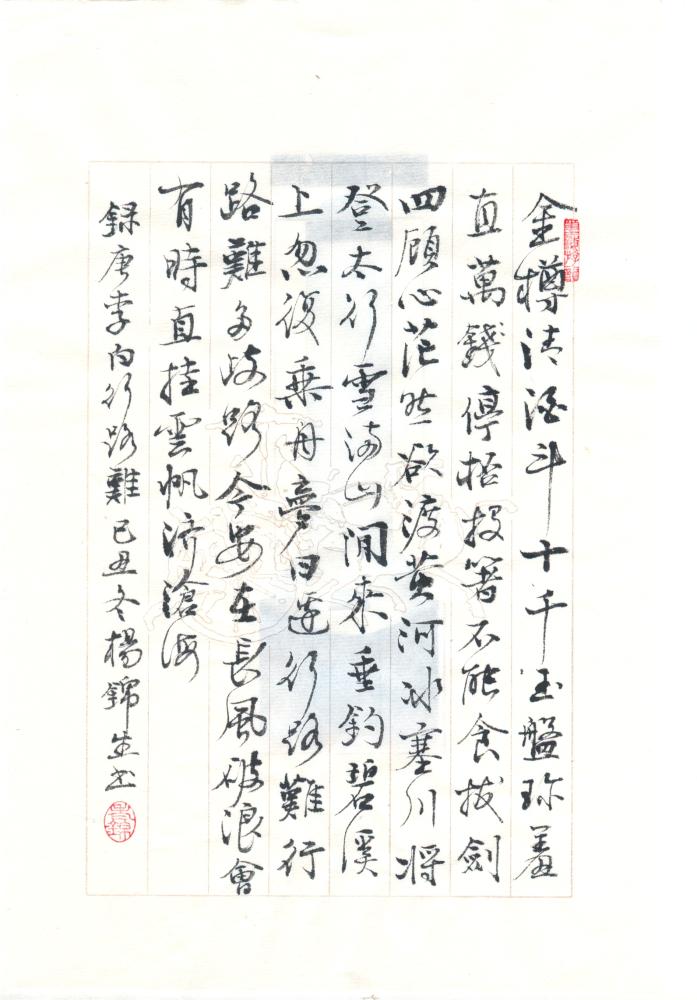 金樽清酒斗十千玉盤珎羞
直萬錢停杯投箸不能食拔劍
四顧心茫然欲渡黃河冰塞川將
登太行雪滿山閒來垂釣碧溪
上忽復乘舟夢日邊行路難行
路難多歧路今安在長風破浪會
有時直挂雲帆济滄海
録唐李白行路難己丑冬楊錦生書